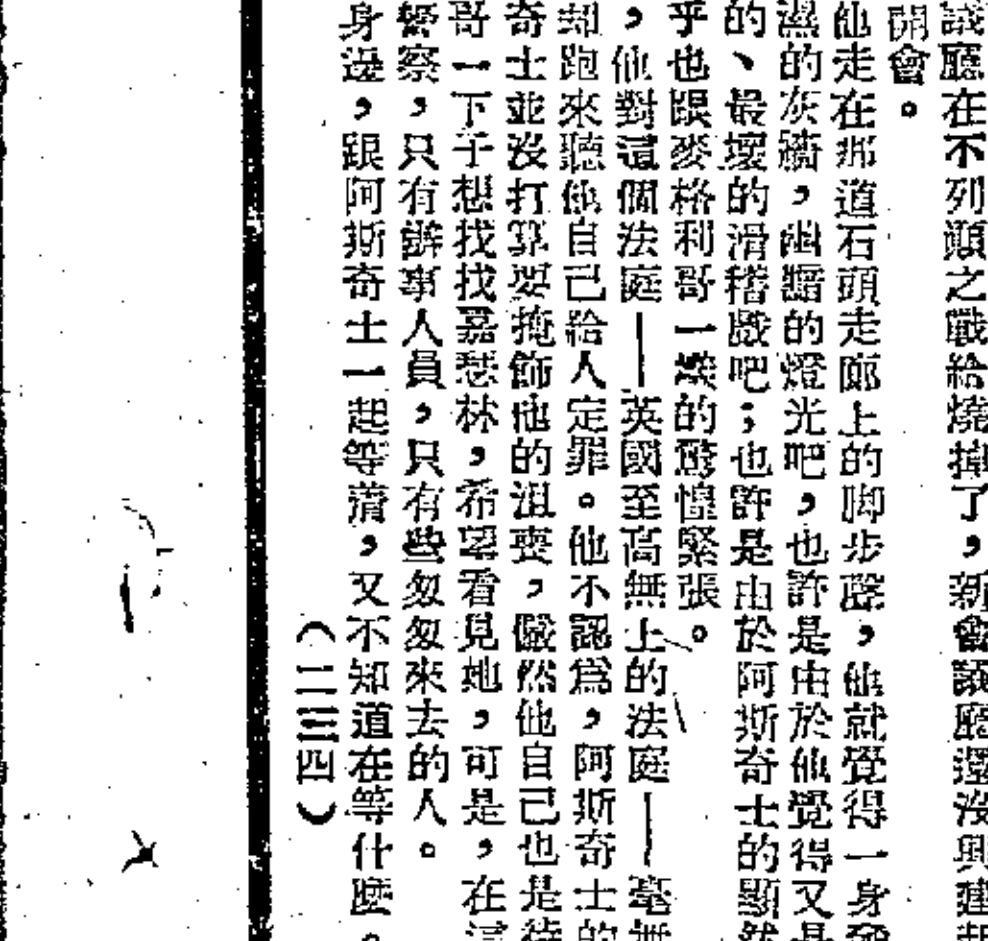 議廳在不列顛之戰給燒掉了，新會議廳還沒興建起
開會。
他走在那道石頭走廊上的脚步聲，他就覺得一身發
濕的灰牆，幽黯的燈光吧，也許是由於他覺得又是
的、最壞的滑稽戲吧；也許是由於阿斯奇士的顯然
乎也跟麥格利哥一樣的驚惶緊張。
，他對這個法庭——英國至高無上的法庭——毫無
却跑來聽他自己給人定罪。他不認爲，阿斯奇士的
奇士並沒打算要掩飾他的沮喪，儼然他自己也是待
哥一下子想找找嘉瑟林，希望看見她，可是，在這
警察，只有辦事人員，只有些匆匆來去的人。
身邊，跟阿斯奇士一起等着，又不知道在等什麼。
（二三四）